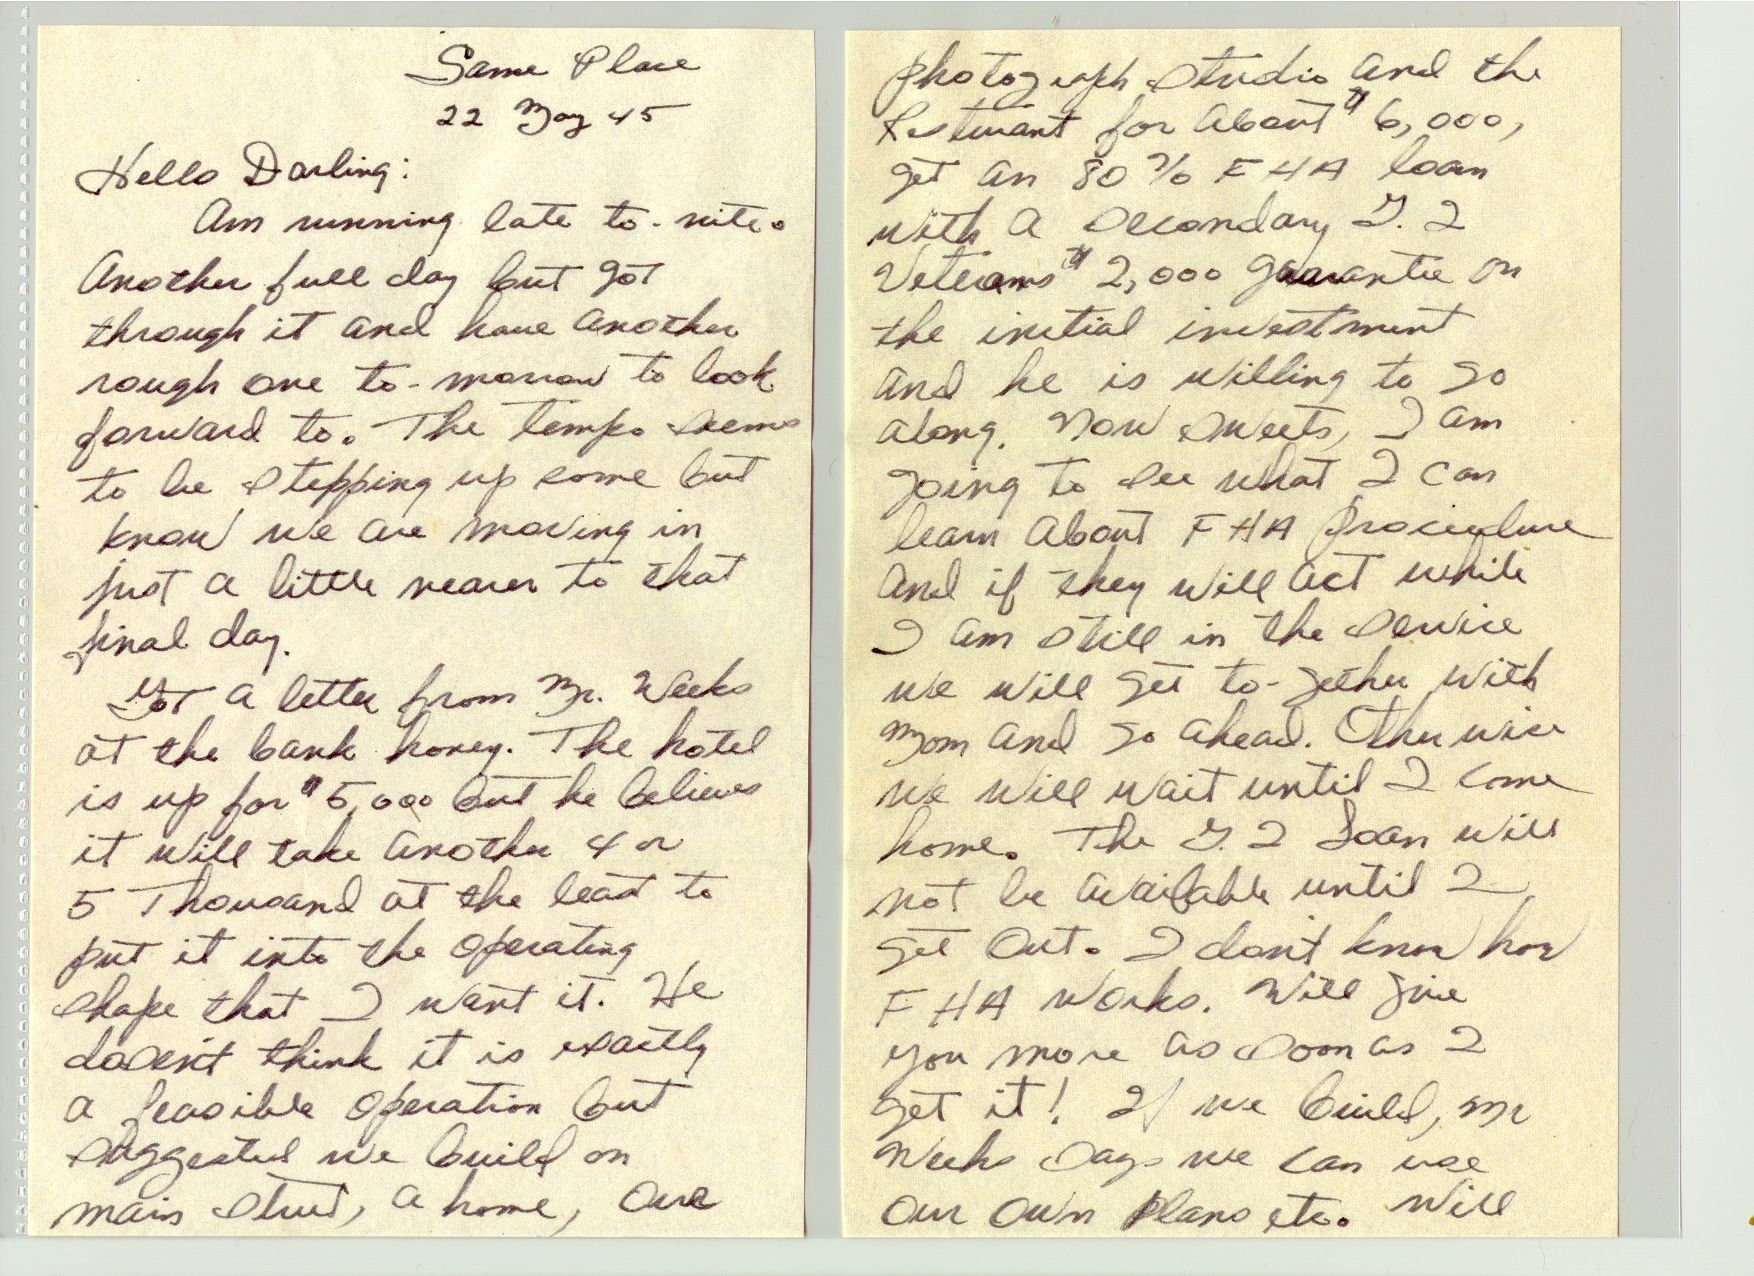 Same Place
22 May 45
Hello Darling:
Am running late to-nite.
Another full day but got
through it and have another
rough one to-morrow to look
forward to. The tempo seems
to be stepping up some but
know we are moving in
just a little nearer to that
final day.
Got a letter from Mr. Weeks
at the bank honey. The hotel
is up for $5,000 but he believes
it will take another 4 or
5 Thousand at the least to
put it into the operating
shape that I want it. He
doesn't think it is exactly
a feasible operation but
suggested we build on
main street, a home, our
photograph studio and the
Resturant for about $6,000,
get an 80% FHA loan
with a secondary G.I
Veterans $2,000 guarantee on
the initial investment
and he is willing to go
along. Now sweets, I am
going to see what I can
learn about FHA procedure
and if they will act while
I am still in the service
we will get to-gether with
Mom and go ahead. Otherwise
we will wait until I come
home. The G.I Loan will
not be available until I
get out. I don't know how
FHA works. Will give
you more as soon as I
get it! If we build, Mr
Weeks says we can use
our own plans etc. Will